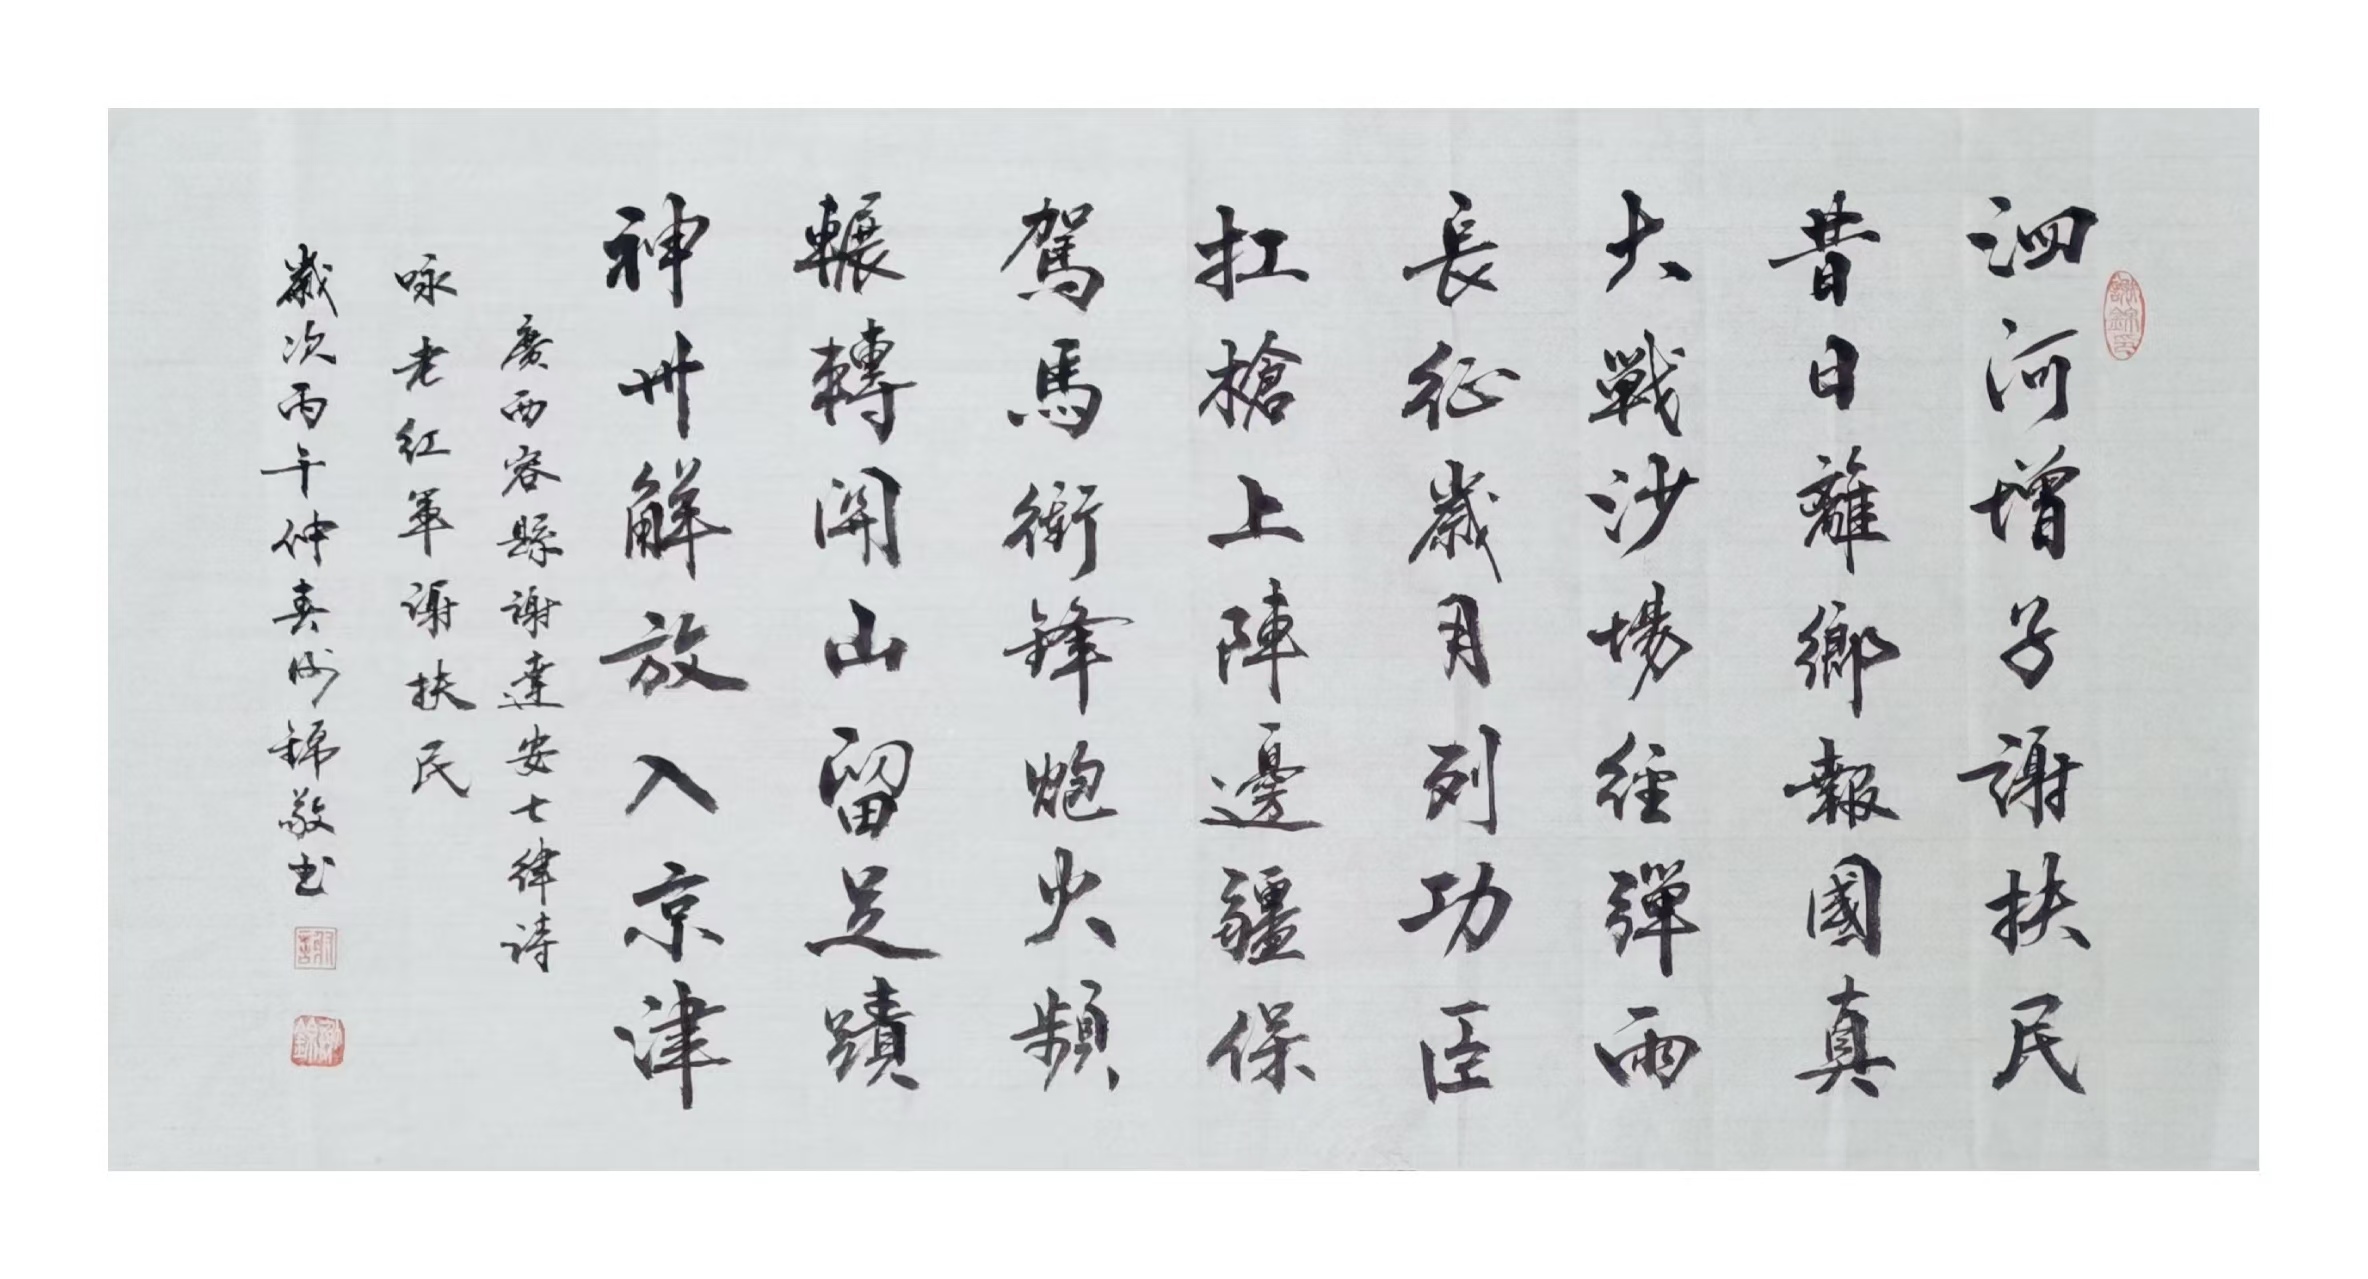 謝錦印
泗河增子謝扶民
昔日離鄉報國真
大戰沙場經彈雨
長征歲月列功臣
扛槍上陣邊疆保
駕馬衝鋒炮火頻
輾轉開山留足蹟
神州解放入京津
廣西容縣謝達安七律詩
咏老紅軍謝扶民
歲次丙午仲春謝錦敬书
謝